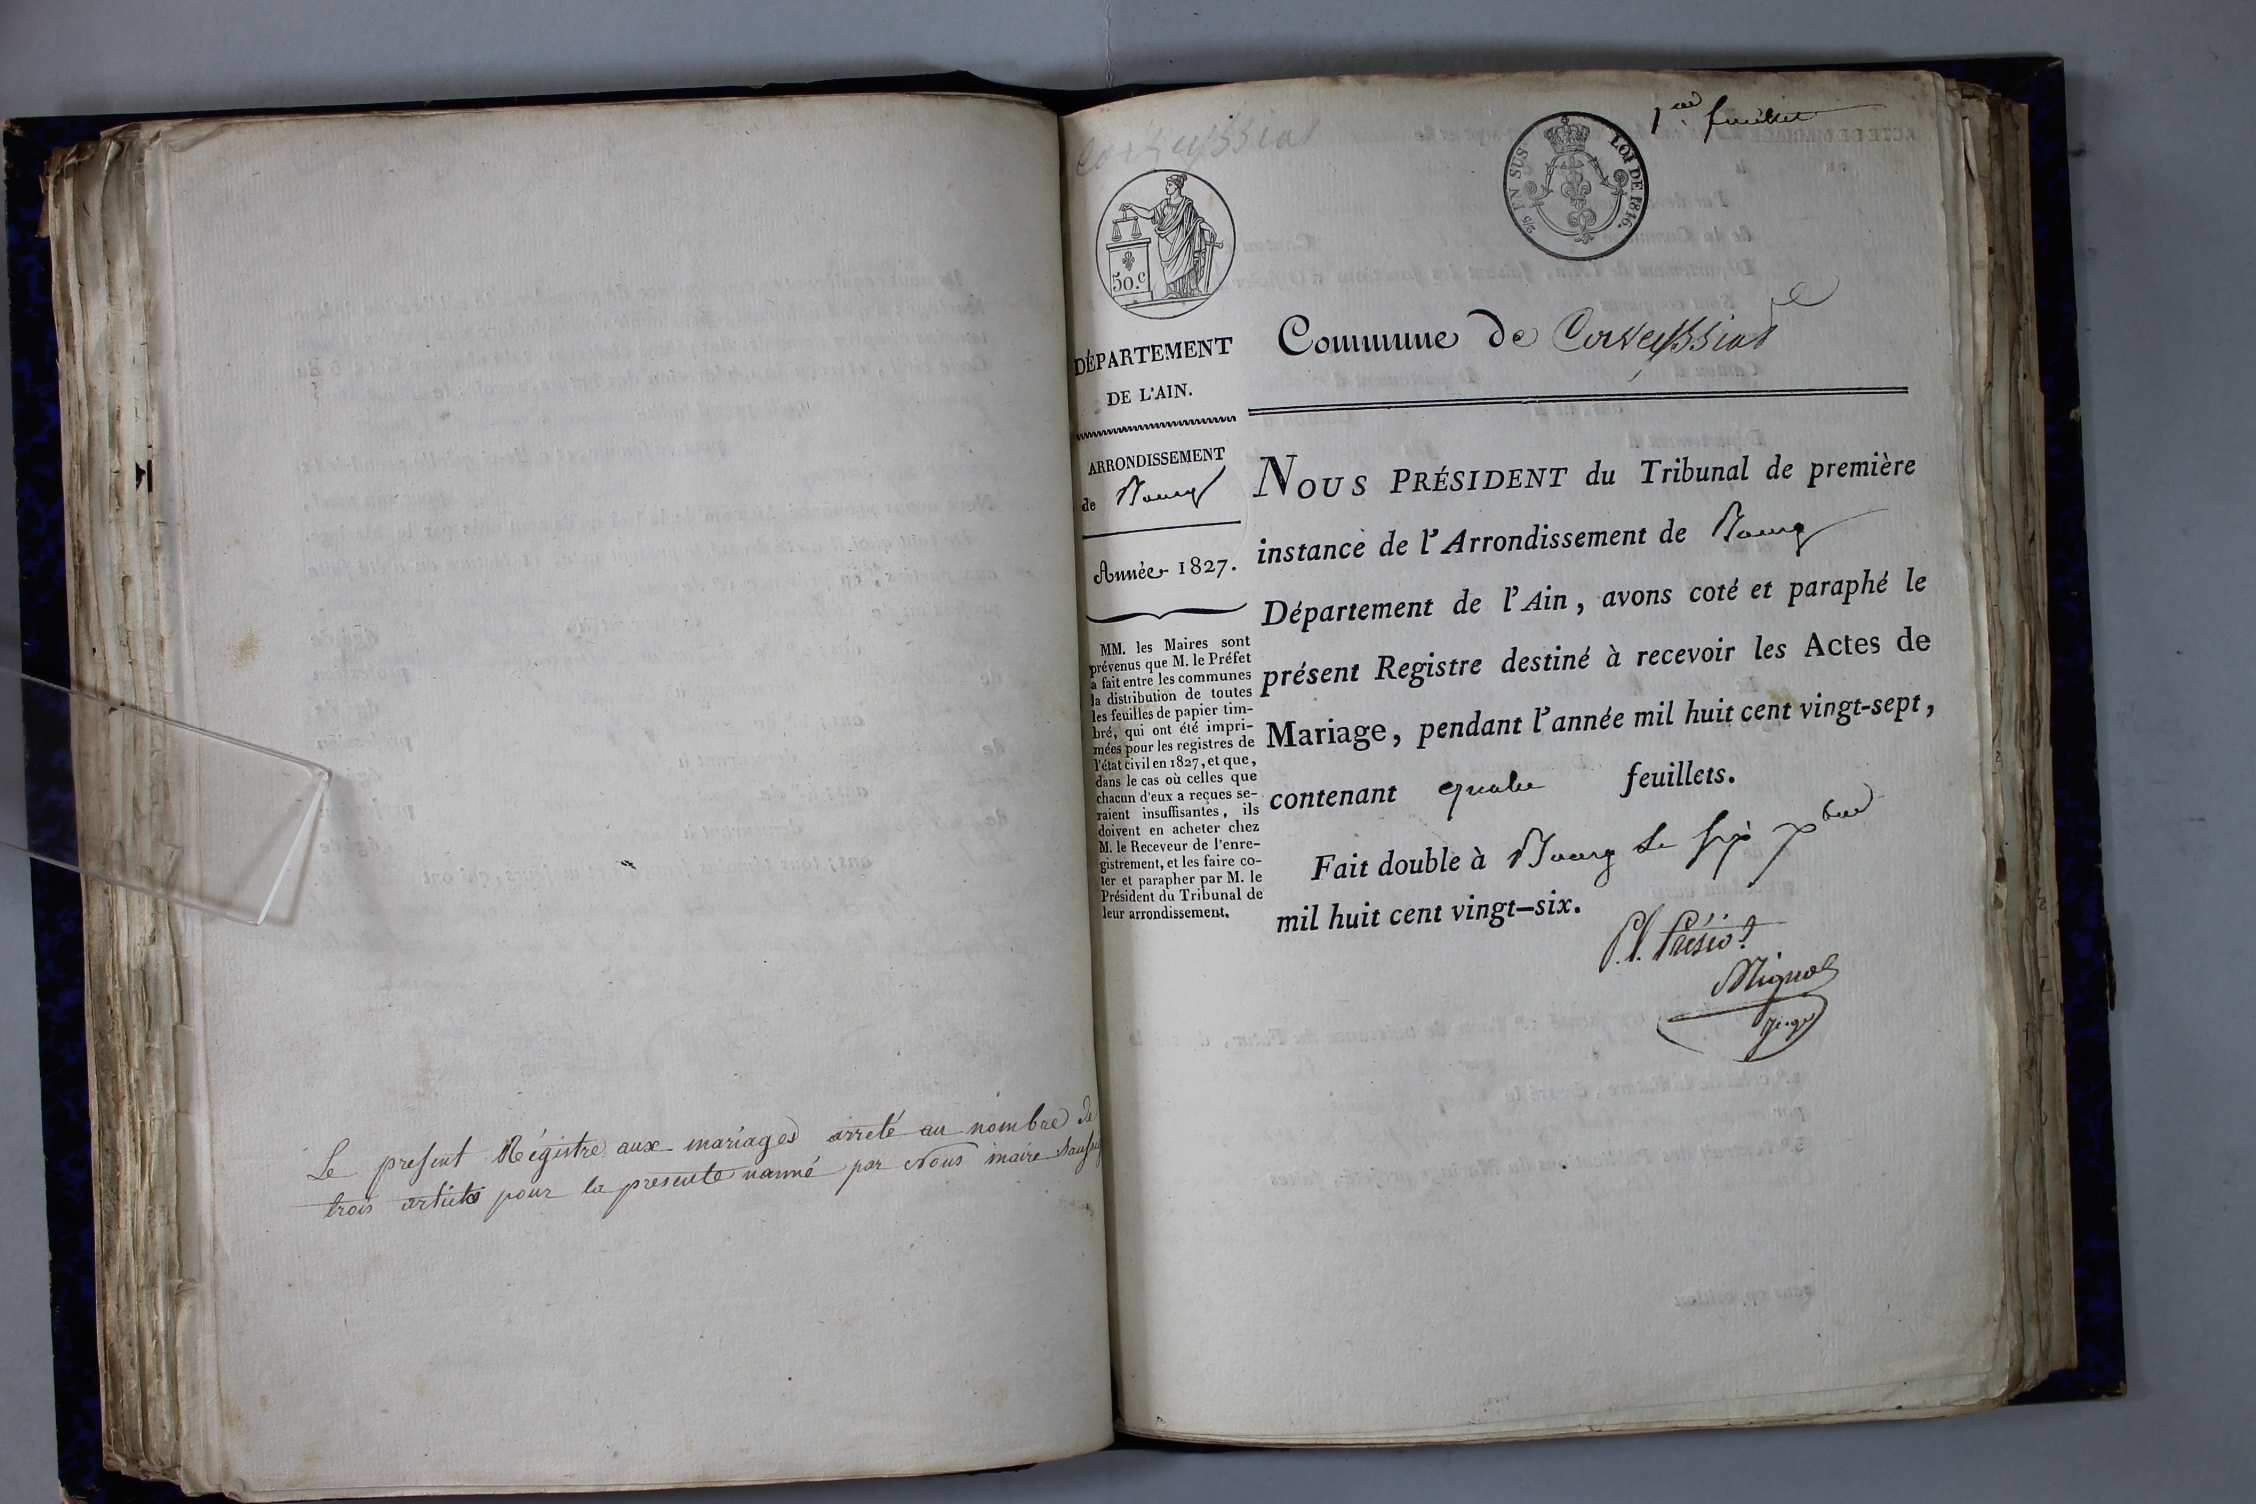 Le present Régistre aux mariages arreté au nombre de
trois articles pour la presente nanné par Nous maire
Corveyssiat
1er feuillet
2/5 EN SUS
LOI DE 1816.
50.c
DÉPARTEMENT
DE L'AIN.
ARRONDISSEMENT
de Bourg
Année 1827.
MM. les Maires sont
prévenus que M. le Préfet
a fait entre les communes
la distribution de toutes
les feuilles de papier tim-
bré, qui ont été impri-
mées pour les registres de
l'état civil en 1827, et que,
dans le cas où celles que
chacun d'eux a reçues se-
raient insuffisantes, ils
doivent en acheter chez
M. le Receveur de l'enre-
gistrement, et les faire co-
ter et parapher par M. le
Président du Tribunal de
leur arrondissement.
Commune de Corveyssiat
NOUS PRÉSIDENT du Tribunal de première
instance de l'Arrondissement de Bourg
Département de l'Ain, avons coté et paraphé le
présent Registre destiné à recevoir les Actes de
Mariage, pendant l'année mil huit cent vingt-sept,
contenant quatre feuillets.
Fait double à Bourg le six xbre
mil huit cent vingt-six.
P. l. Présid.t
juge